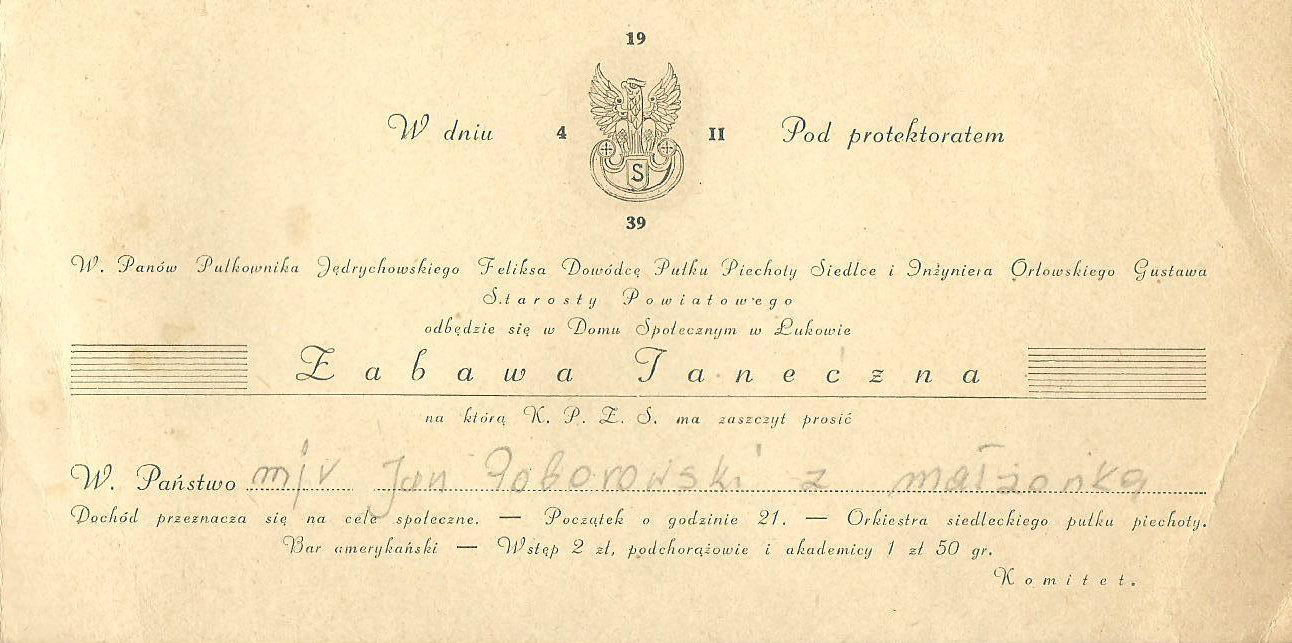 19
W dniu 4 II Pod protektoratem
S
39
W. Panów Pułkownika Jędrychowskiego Feliksa Dowódcę Pułku Piechoty Siedlce i Inżyniera Orłowskiego Gustawa
Starosty Powiatowego
odbędzie się w Domu Społecznym w Łukowie
Zabawa Taneczna
na którą K. P. Z. S. ma zaszczyt prosić
W. Państwo mjr Jan Poborowski z małżonką
Dochód przeznacza się na cele społeczne. — Początek o godzinie 21. — Orkiestra siedleckiego pułku piechoty.
Bar amerykański — Wstęp 2 zł, podchorążowie i akademicy 1 zł 50 gr.
Komitet.